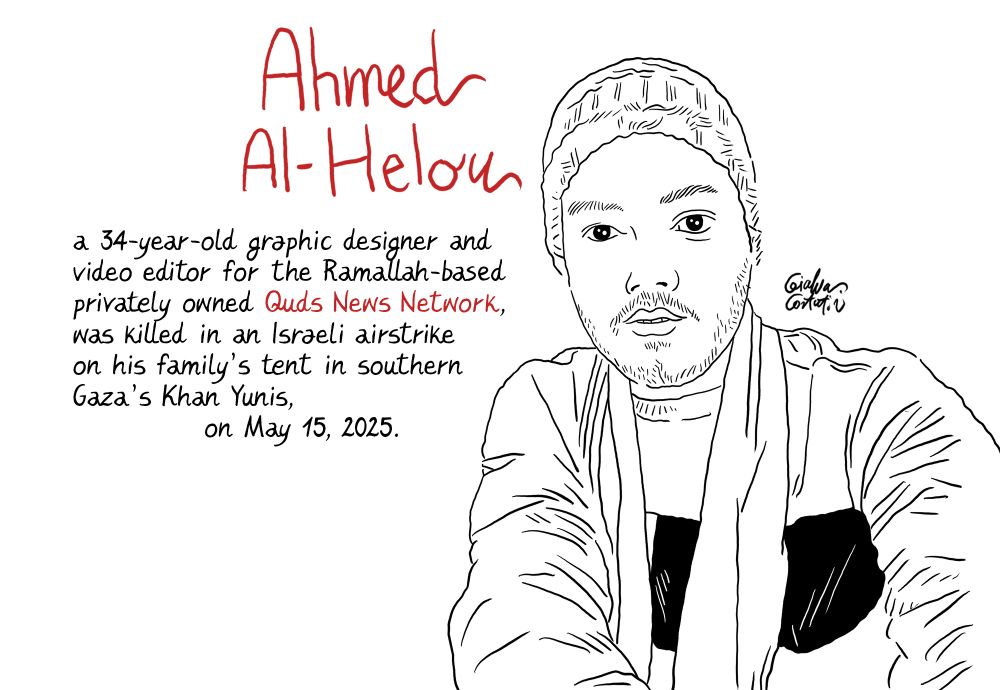 Ahmed
Al-Helou
a 34-year-old graphic designer and
video editor for the Ramallah-based
privately owned Quds News Network,
was killed in an Israeli airstrike
on his family's tent in southern
Gaza's Khan Yunis,
on May 15, 2025.